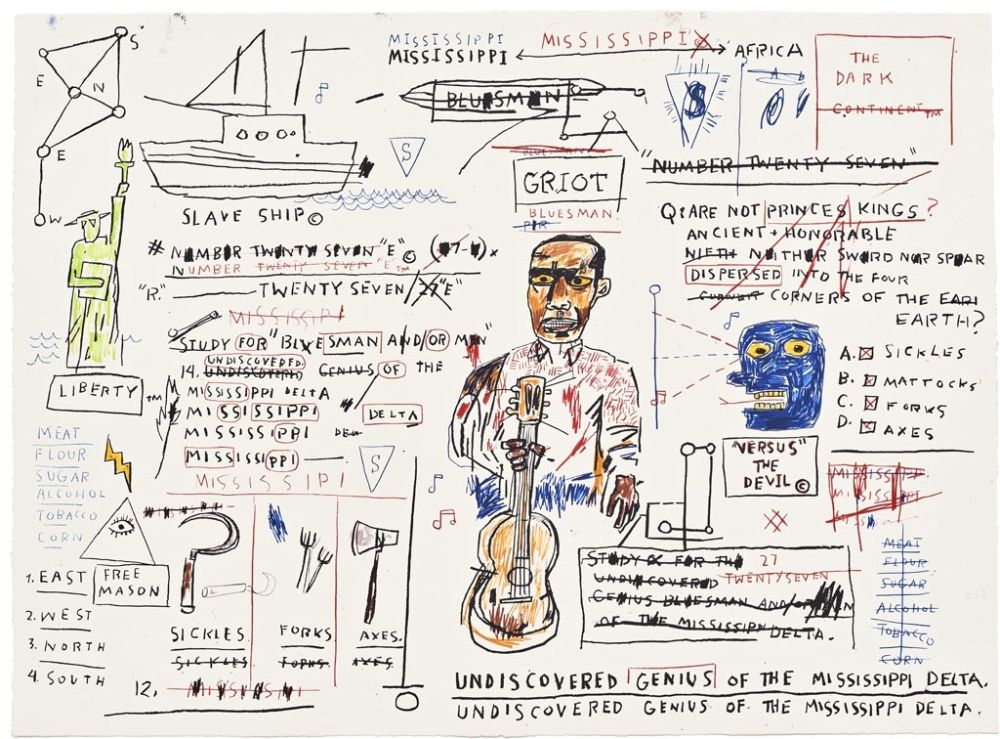 S
E
N
E
W
MISSISSIPPI
MISSISSIPPI
MISSISSIPPI
AFRICA
BLUESMAN
S
S
THE
DARK
CONTINENT™
"NUMBER TWENTY SEVEN"
GRIOT
BLUESMAN.
SLAVE SHIP©
# NUMBER TWENTY SEVEN "E"©
NUMBER TWENTY SEVEN "E™
"R." TWENTY SEVEN/27"E"
MISSISSIPI
STUDY FOR "BLUESMAN AND/OR MEN"
UNDISCOVERED
14. UNDISCOVERED GENIUS OF THE
MISSISSIPPI DELTA
MISSISSIPPI DELTA
MISSISSIPPI DEL
MISSISSIPPI
S
MISSISSIPI
Q: ARE NOT PRINCES KINGS?
ANCIENT + HONORABLE
NIETH NEITHER SWORD NOR SPEAR
DISPERSED INTO THE FOUR
CORNER CORNERS OF THE EARI
EARTH?
A. SICKLES
B. MATTOCKS
C. FORKS
D. AXES
LIBERTY™
MEAT
FLOUR
SUGAR
ALCOHOL
TOBACCO
CORN
FREE
MASON
1. EAST
2. WEST
3. NORTH
4. SOUTH
SICKLES
SICKLES
FORKS
FORKS
AXES.
AXES
12. MISSISSIPPI
"VERSUS"
THE
DEVIL©
MISSISSIPPI
MISSISSIPPI
MEAT
FLOUR
SUGAR
ALCOHOL
TOBACCO
CORN
STUDY FOR THE 27
UNDISCOVERED TWENTYSEVEN
GENIUS BLUESMAN AND/OR
OF THE MISSISSIPPI DELTA.
UNDISCOVERED GENIUS OF THE MISSISSIPPI DELTA.
UNDISCOVERED GENIUS OF THE MISSISSIPPI DELTA.